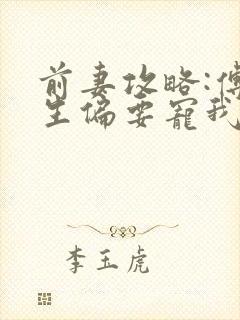 前妻攻略:傅
生偏要宠我
李玉虎